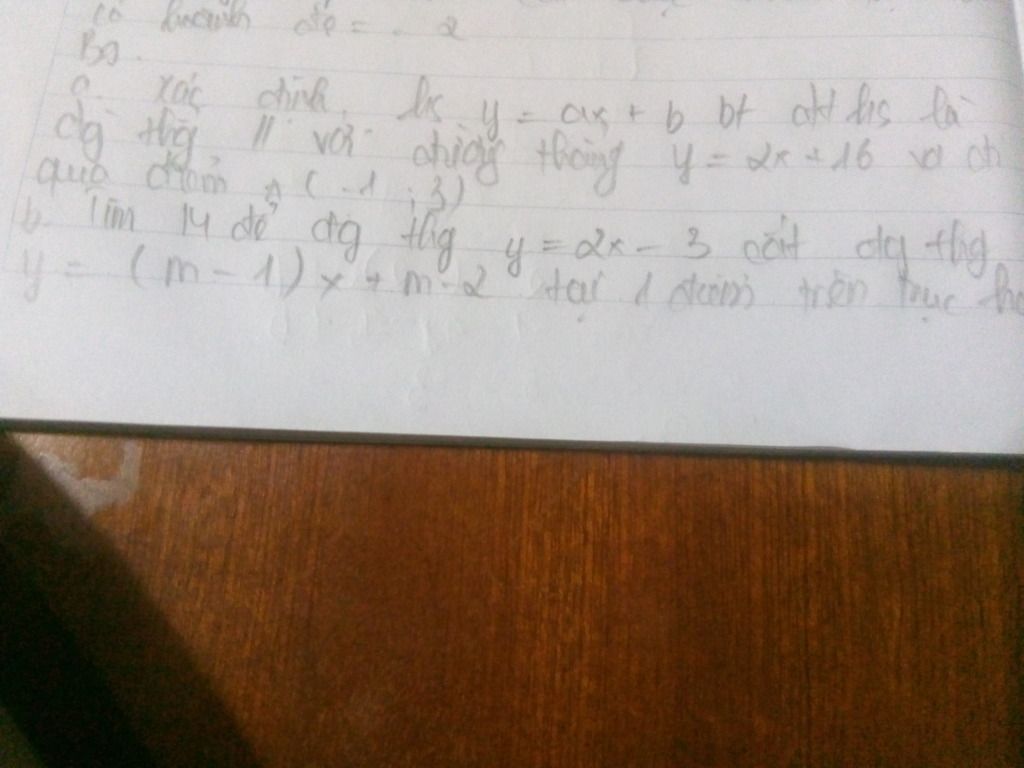 có hoành độ = - 2
B3.
a. xác định hs y = ax + b bt đt hs là
đg thg // với đường thẳng y = 2x + 16 và đi
qua điểm A (-1 ; 3)
b. Tìm M để đg thg y = 2x - 3 cắt đg thg
y = (m - 1) x + m - 2 tại 1 điểm trên trục